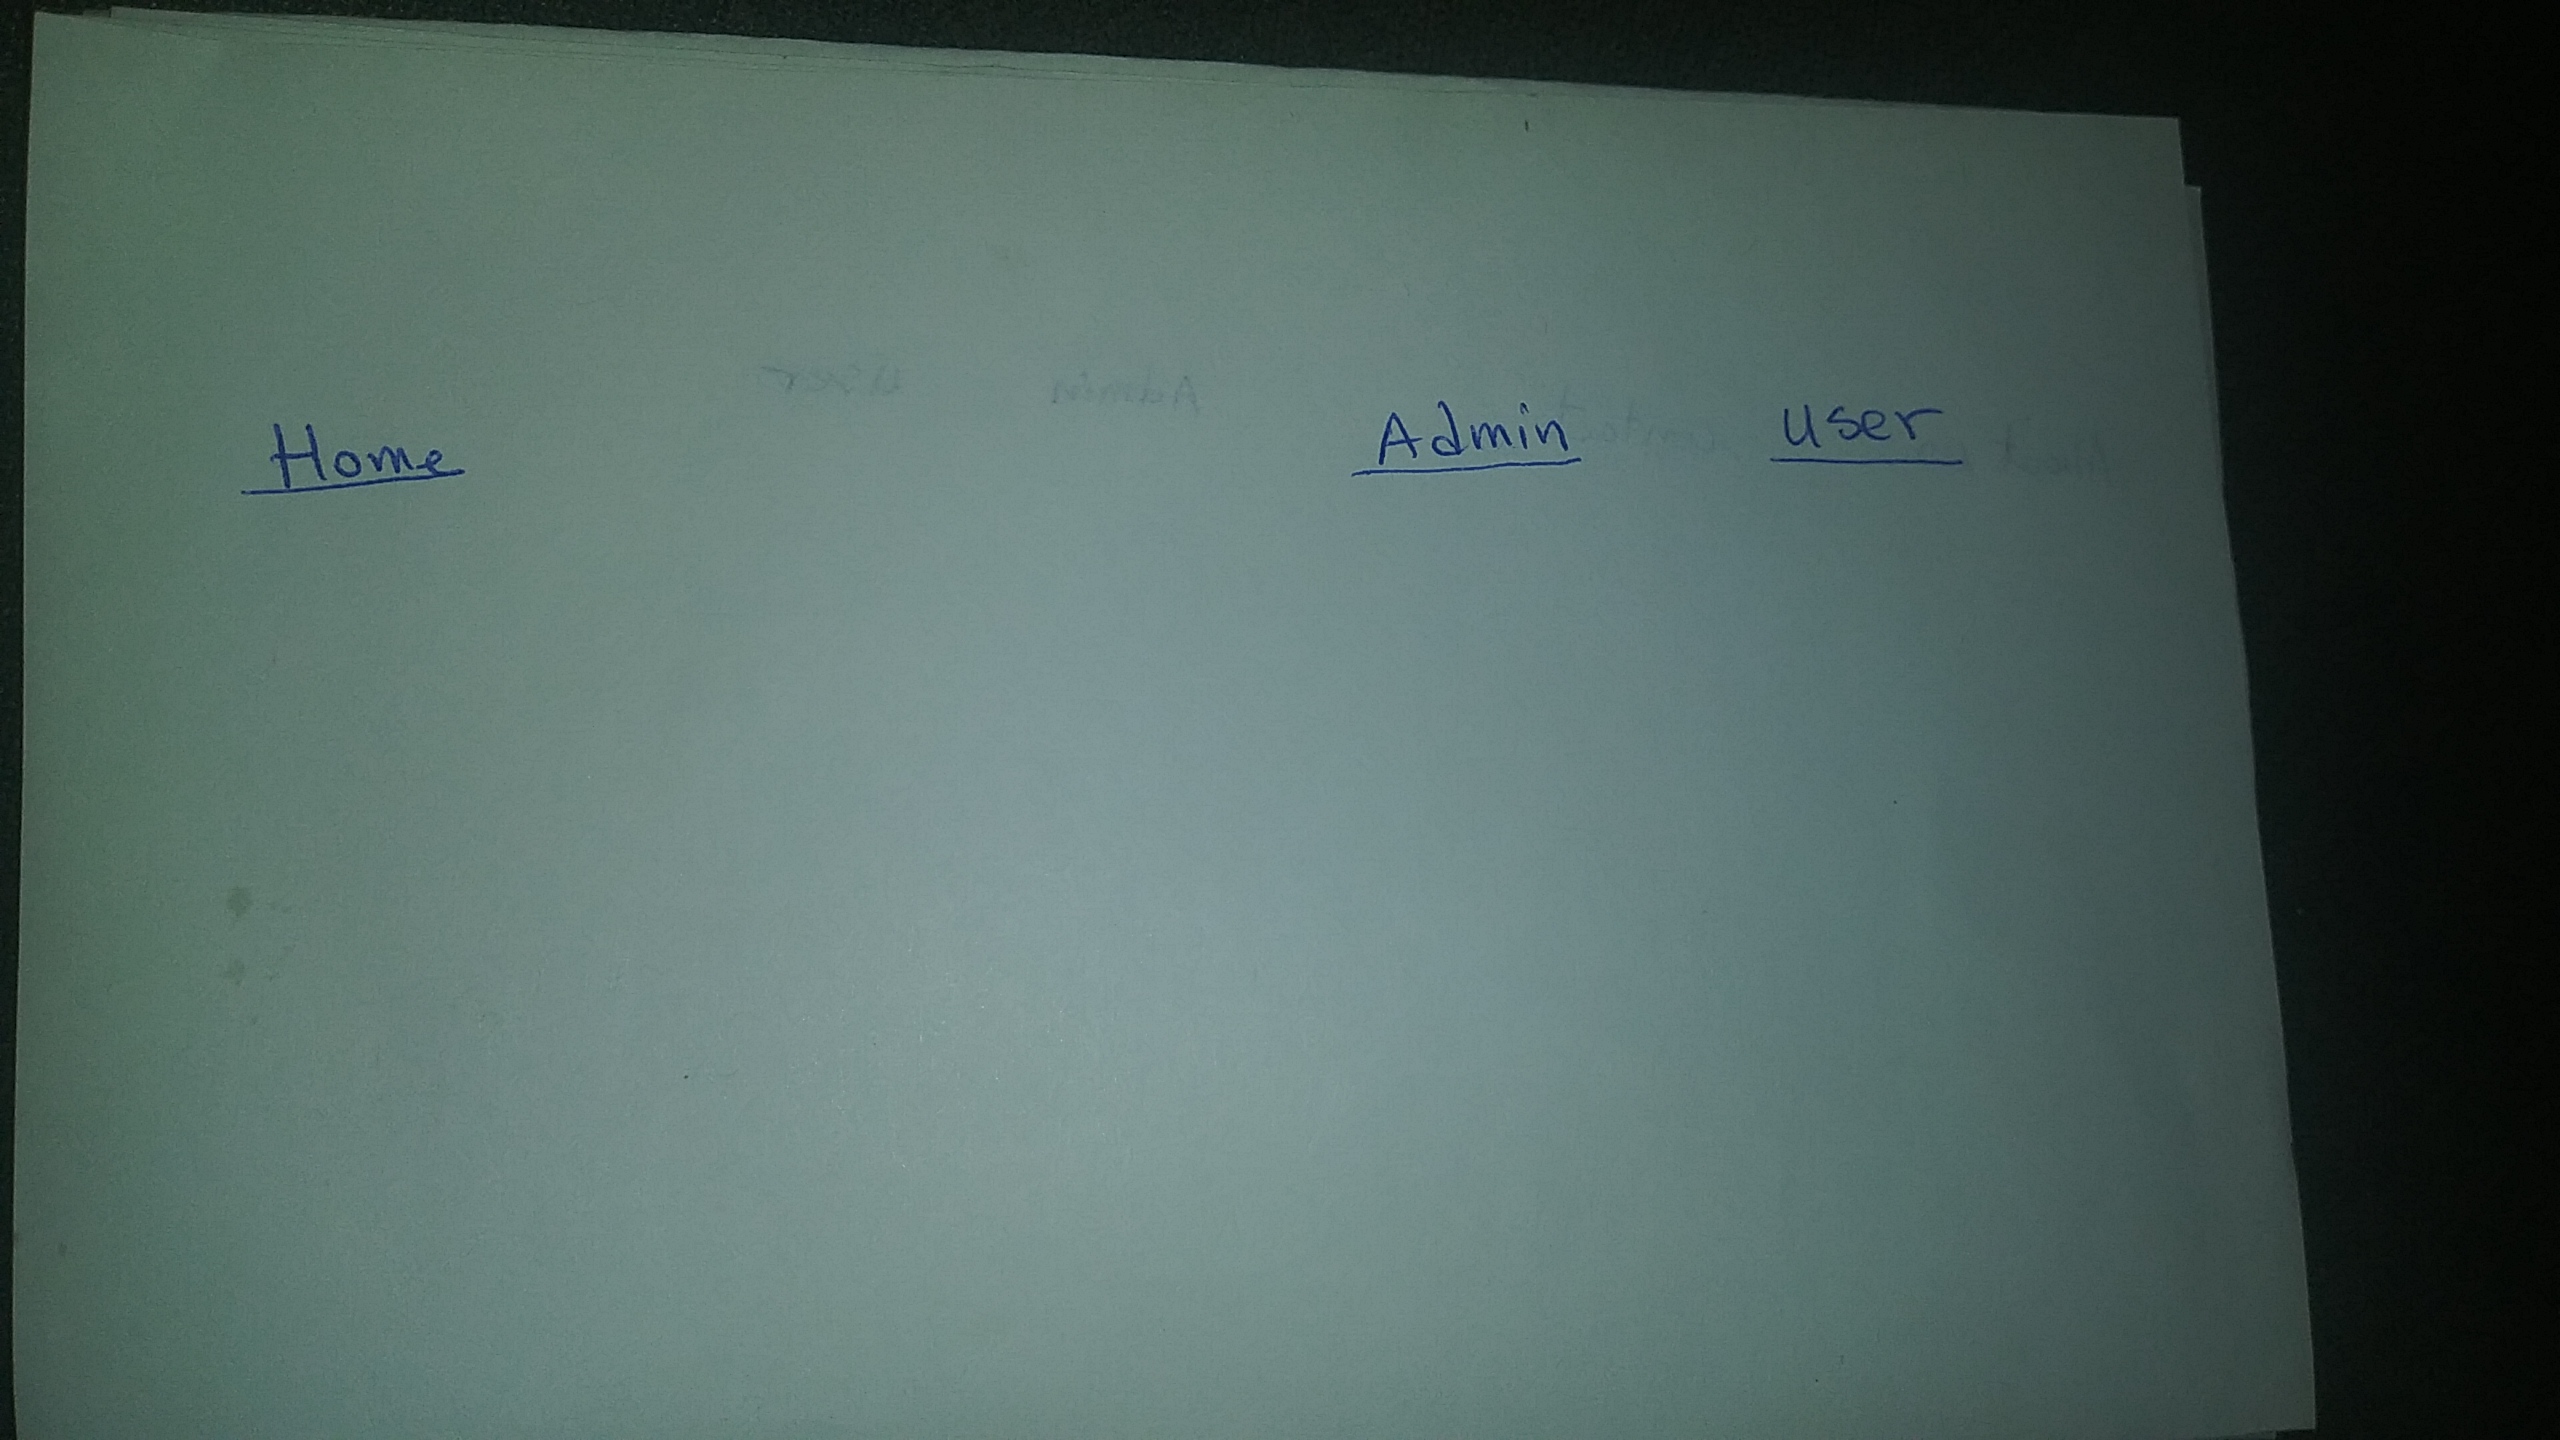 Home Admin User